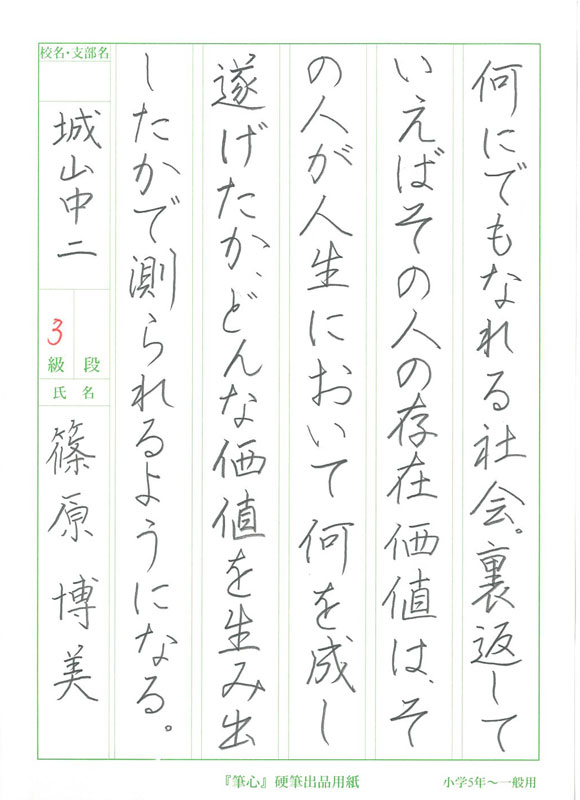 何にでもなれる社会。裏返して
いえばその人の存在価値は、そ
の人が人生において何を成し
遂げたか、どんな価値を生み出
したかで測られるようになる。
校名・支部名
城山中二
3
級 段
氏 名
篠原 博美
『筆心』硬筆出品用紙
小学5年〜一般用